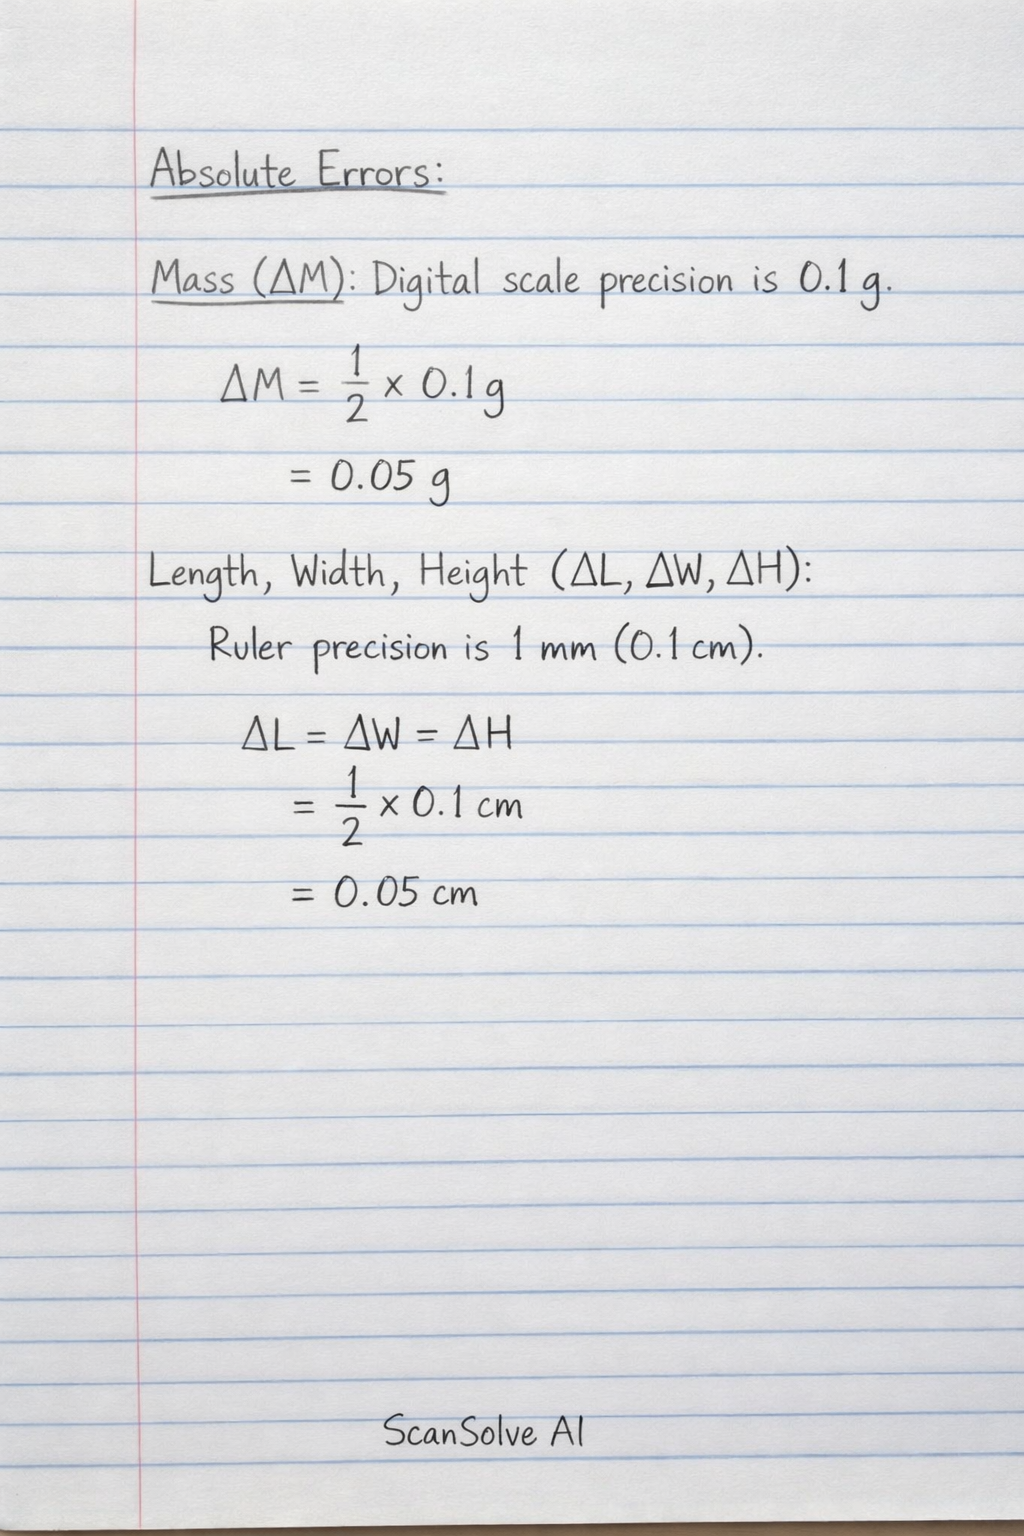 Absolute Errors:
Mass (ΔM): Digital scale precision is 0.1 g.
ΔM = 1/2 × 0.1 g
= 0.05 g
Length, Width, Height (ΔL, ΔW, ΔH):
Ruler precision is 1 mm (0.1 cm).
ΔL = ΔW = ΔH
= 1/2 × 0.1 cm
= 0.05 cm
ScanSolve AI